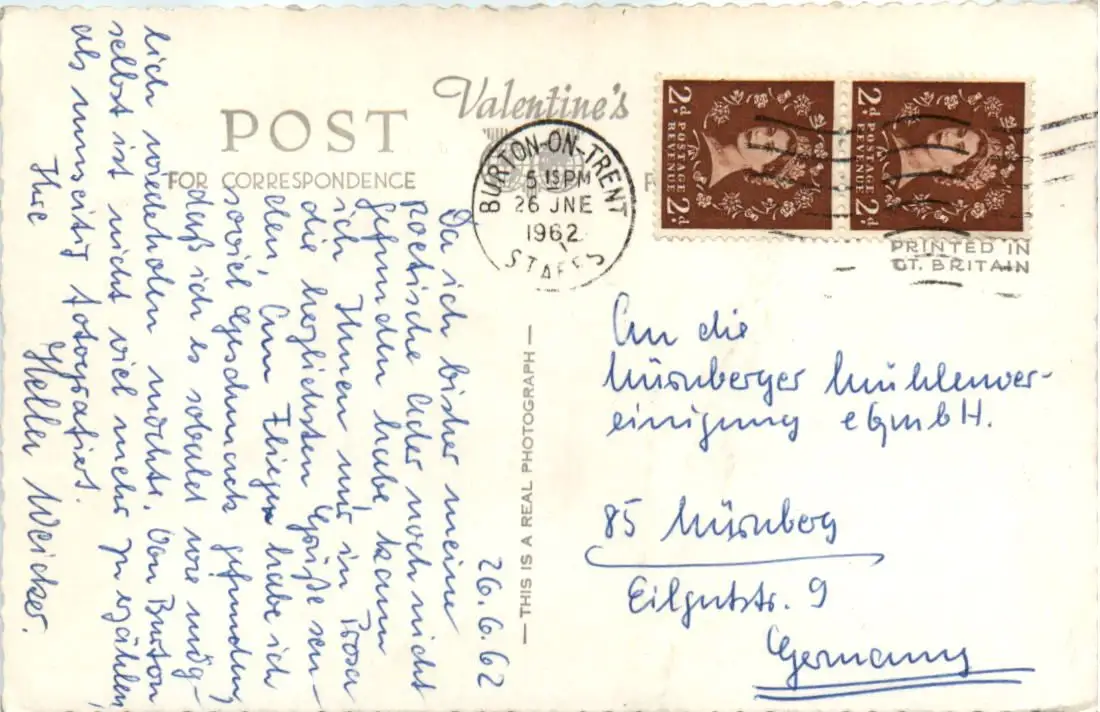 POST
Valentine's
FOR CORRESPONDENCE
F
BURTON-ON-TRENT
5 15 PM
26 JNE
1962
STAFFS
2d POSTAGE REVENUE 2d
2d POSTAGE REVENUE 2d
PRINTED IN
GT. BRITAIN
— THIS IS A REAL PHOTOGRAPH —
26.6.62
Da ich bisher meine
poetische Ader noch nicht
gefunden habe, kann
ich Ihnen nur in Prosa
die herzlichsten Grüße sen-
den. Am Fliegen habe ich
soviel Geschmack gefunden,
daß ich es sobald wie mög-
lich wiederholen möchte. Von Burton
selbst ist nicht viel mehr zu erzählen,
als umseitig fotografiert.
Ihre
Hella Weicker.
An die
Nürnberger Mühlenver-
einigung eGmbH.
85 Nürnberg
Eilgutstr. 9
Germany